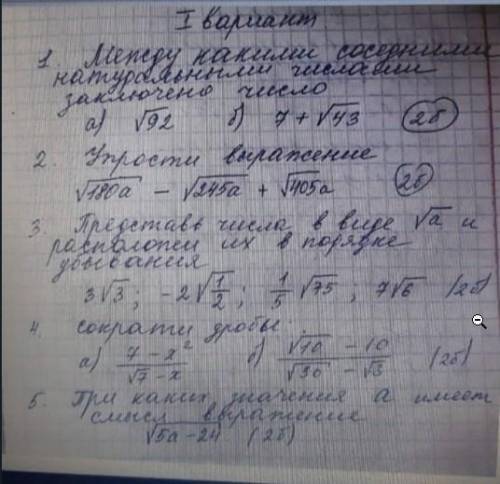 I вариант
1. Между какими соседними
натуральными числами
заключено число
а) √92 б) 7 + √43 (2б)
2. Упрости выражение
√180a - √245a + √405a (2б)
3. Представь числа в виде √a и
расположи их в порядке
убывания
3√3 ; -2√1/2 ; 1/5 √75 ; 7√6 (2б)
4. сократи дробь:
а) (7 - x²)/(√7 - x) б) (√10 - 10)/(√30 - √3) (2б)
5. При каких значения a имеет
смысл выражение
√5a - 24 (2б)